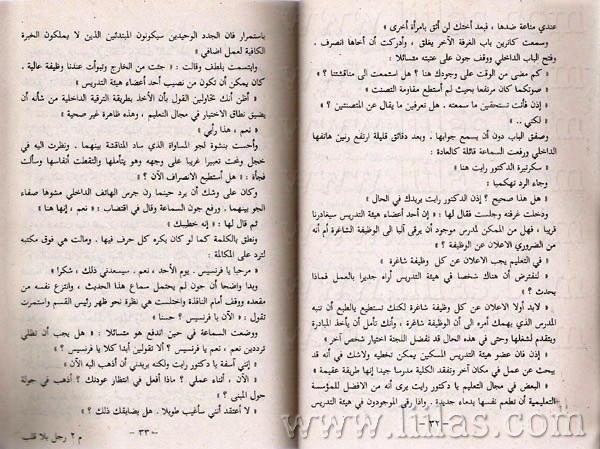 عندي مناعة ضدها ، فبعد أختك لن أثق بامرأة أخرى »
وسمعت كاثرين باب الغرفة الآخر يغلق ، وأدركت أن أخاها انصرف .
فتح الباب الداخلي ووقف جون على عتبته متسائلا :
« كم مضى من الوقت على وجودك هنا ؟ هل استمعت الى مناقشتنا ؟ »
« صوتكما كان مرتفعا بحيث لم أستطع مقاومة التصنت »
« إذن فأنت تستحقين ما سمعته . هل تعرفين ما يقال عن المتصنتين ؟ »
« لكني .. »
وصفق الباب دون أن يسمع جوابها . وبعد دقائق قليلة ارتفع رنين هاتفها
الداخلي ورفعت السماعة قائلة كالعادة :
« سكرتيرة الدكتور رايت هنا »
وجاء الرد تهكميا :
« هل هذا صحيح ؟ إذن الدكتور رايت يريدك في الحال »
ودخلت غرفته وجلست فقال لها : « إن أحد أعضاء هيئة التدريس سيغادرنا
قريبا ، فهل من الممكن لمدرس موجود أن يرقى آليا الى الوظيفة الشاغرة أم أنه
من الضروري الاعلان عن الوظيفة ؟ »
« في التعليم يجب الاعلان عن كل وظيفة شاغرة »
« لنفترض أن هناك شخصا في هيئة التدريس أراه جديرا بالعمل فماذا
يحدث ؟ »
« لابد أولا الاعلان عن كل وظيفة شاغرة لكنك تستطيع بالطبع أن تنبه
المدرس الذي يهمك أمره الى أن الوظيفة شاغرة ، وأنك تأمل أن يأخذ المبادرة
ويتقدم لشغلها وحتى في هذه الحال قد تفضل اللجنة اختيار شخص آخر »
« إذن فان عضو هيئة التدريس المسكين يمكن تخطيه ولاشك في أنه قد
يبحث عن عمل في مكان آخر وتفقد الكلية مدرسا جيدا إنها طريقة عقيمة »
« البعض في مجال التعليم يا دكتور رايت يرى أنه من الافضل للمؤسسة
التعليمية أن تطعم نفسها بدماء جديدة . واذا رقي الموجودون في هيئة التدريس
- ٣٢ -
باستمرار فان الجدد الوحيدين سيكونون المبتدئين الذين لا يملكون الخبرة
الكافية لعمل اضافي »
وابتسمت بلطف وقالت : « جئت من الخارج وتبوأت عندنا وظيفة عالية .
كان يمكن أن تكون من نصيب أحد أعضاء هيئة التدريس »
« أظن أنك تحاولين القول بأن الأخذ بطريقة الترقية الداخلية من شأنه أن
يضيق نطاق الاختيار في مجال التعليم ، وهذه ظاهرة غير صحية »
« نعم ، هذا رأيي »
وأحست بنشوة لجو المساواة الذي ساد المناقشة بينهما . ونظرت اليه في
خجل ولمحت تعبيرا غريبا على وجهه وهو يتأملها والتقطت أنفاسها وسألت
فجأة : « هل أستطيع الانصراف الآن ؟ »
وكان على وشك أن يرد حينما رن جرس الهاتف الداخلي مشوها صفاء
الجو بينهما . ورفع جون السماعة وقال في اقتضاب : « نعم ، إنها هنا »
ثم قال لها : « إنه خطيبك »
ونطق بالكلمة كما لو كان يكره كل حرف فيها . ومالت هي فوق مكتبه
لترد على المكالمة :
« مرحبا يا فرنسيس . يوم الأحد ، نعم . سيسعدني ذلك ، شكرا »
وبدا واضحا أن جون لم يحتمل سماع هذا الحديث ، وانتزع نفسه من
مقعده ووقف أمام النافذة واختلست هي نظرة نحو ظهر رئيس القسم واستمرت
تقول : « الآن يا فرنسيس ؟ حسنا »
ووضعت السماعة في حين اندفع هو متسائلا : « هل يجب أن تظلي
ترددين نعم ، نعم يا فرنسيس ؟ ألا تقولين أبدا كلا يا فرنسيس ؟ »
« إنني آسفة يا دكتور رايت ولكنه يريدني أن أذهب اليه الآن »
« الآن ، أثناء عملي ؟ ماذا أفعل في انتظار عودتك ؟ أذهب في جولة
حول المبنى ؟ »
« لا أعتقد أنني سأغيب طويلا . هل يضايقك ذلك ؟ »
- ٣٣ -
م ٢ رجل بلا قلب
www.liilas.com